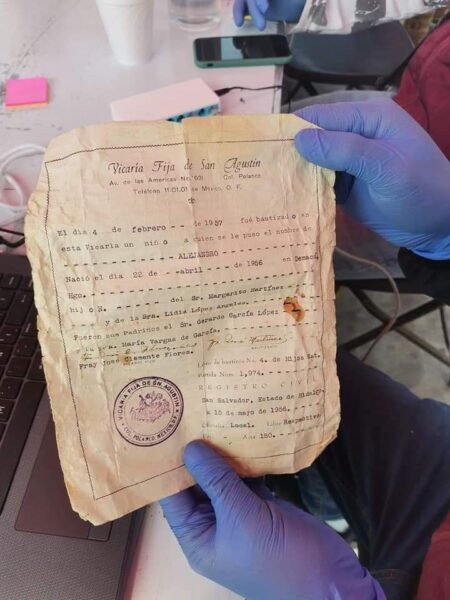 Vicaría Fija de San Agustín
Av. de las Americas No. 601 Col. Polanco
Teléfono 11.01.01 de México, D. F.
El día 4 de febrero - - de 1957 fué bautizado en
esta Vicaría un niño a quien se le puso el nombre de
ALEJANDRO
Nació el día 22 de - -abril - - de 1956 en Demacú,
Hgo.
hijo N. del Sr. Margarito Martínez
y de la Sra. Lidia López
Fueron sus Padrinos el Sr. Gerardo García López
María Vargas de García.
Fray José Clemente Flores.
Libro de bautizos No. 4. de Hijos
1,974.
REGISTRO CIVIL
San Salvador, Estado de Hidalgo
a 10 de mayo de 1956.
Local. Libro Respectivo
180.
VICARIA FIJA DE SN. AGUSTIN
COL. POLANCO MEXICO, D.F.